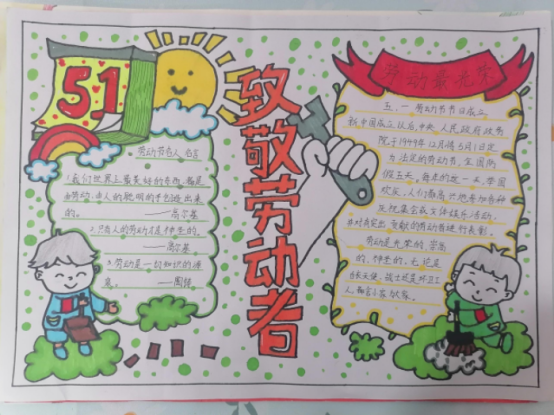 51
致敬劳动者
劳动最光荣
劳动节名人名言
1.我们世界上最美好的东西,都是
由劳动、由人的聪明的手创造出来
的。——高尔基
2.只有人的劳动才是神圣的。
——高尔基
3.劳动是一切知识的源
泉。——陶铸
五、一劳动节节日成立
新中国成立以后,中央人民政府政务
院于1949年12月将5月1日定
为法定的劳动节,全国放
假五天。每年的这一天,举国
欢庆,人们
庆祝集会或文体娱乐活动,
并对有突出贡献的劳动者进行表彰。
劳动是光荣的、崇高
的、神圣的,无论是
白衣天使、战士还是环卫工
人、